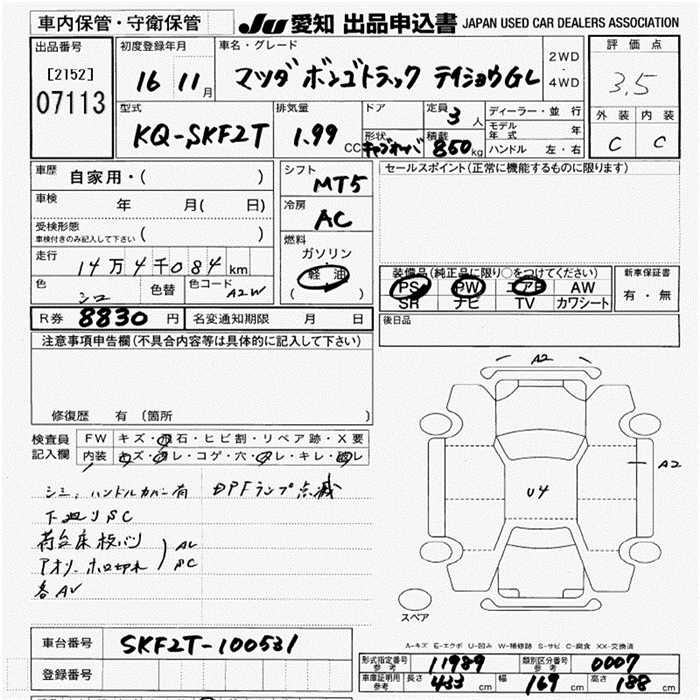 車内保管・守衛保管 JU 愛知 出品申込書 JAPAN USED CAR DEALERS ASSOCIATION
出品番号 初度登録年月 車名・グレード 2WD・4WD 評価点
[2152] 07113 16 11月 マツダ ボンゴトラック テイショウGL 3.5
型式 排気量 ドア 定員 3人 ディーラー・並行 外装 内装
KQ-SKF2T 1.99 CC 形状 キャブオーバ 積載 850kg モデル年式 年 C C
ハンドル 左・右
車歴 自家用・( ) シフト MT5 セールスポイント(正常に機能するものに限ります)
車検 年 月( 日) 冷房 AC
受検形態 車検付きのみ記入して下さい ( )
燃料 ガソリン 軽油 ( )
走行 14万4千084km
装備品(純正品に限り○をつけてください) 新車保証書
色 シロ 色替 色コード A2W PS PW エアB AW 有・無
SR ナビ TV カワシート
R券 8830円 名変通知期限 月 日 後日品
注意事項申告欄(不具合内容等は具体的に記入して下さい)
A2
修復歴 有 (箇所 )
検査員記入欄 FW キズ・飛石・ヒビ割・リペア跡・X要
内装 キズ・汚レ・コゲ・穴・スレ・キレ・破レ
A2
U4
シミ、ハンドルカバー有 DPFランプ点滅
下廻りSC
荷台床板バリ
アオリ、ホロ切れ AC SC
各AU
スペア
A-キズ E-エクボ U-凹み W-補修跡 S-サビ C-腐食 XX-交換済
車台番号 SKF2T-100531
登録番号
形式指定番号 参考 11939 類別区分番号 参考 0007
車庫証明用 参考 長さ 433cm 幅 169cm 高さ 188cm